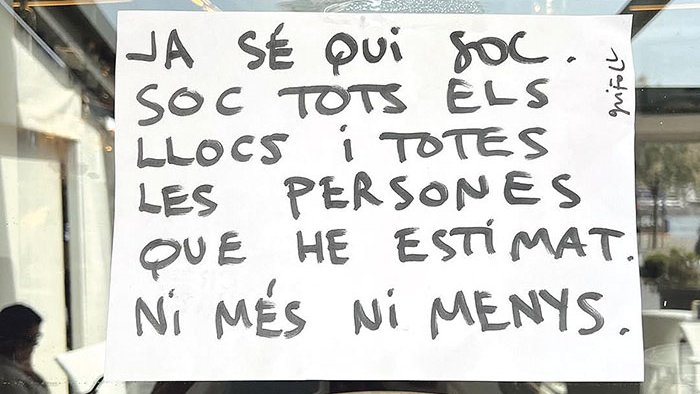 JA SÉ QUI SOC.
SOC TOTS ELS
LLOCS I TOTES
LES PERSONES
QUE HE ESTIMAT.
NI MÉS NI MENYS.
guifoll